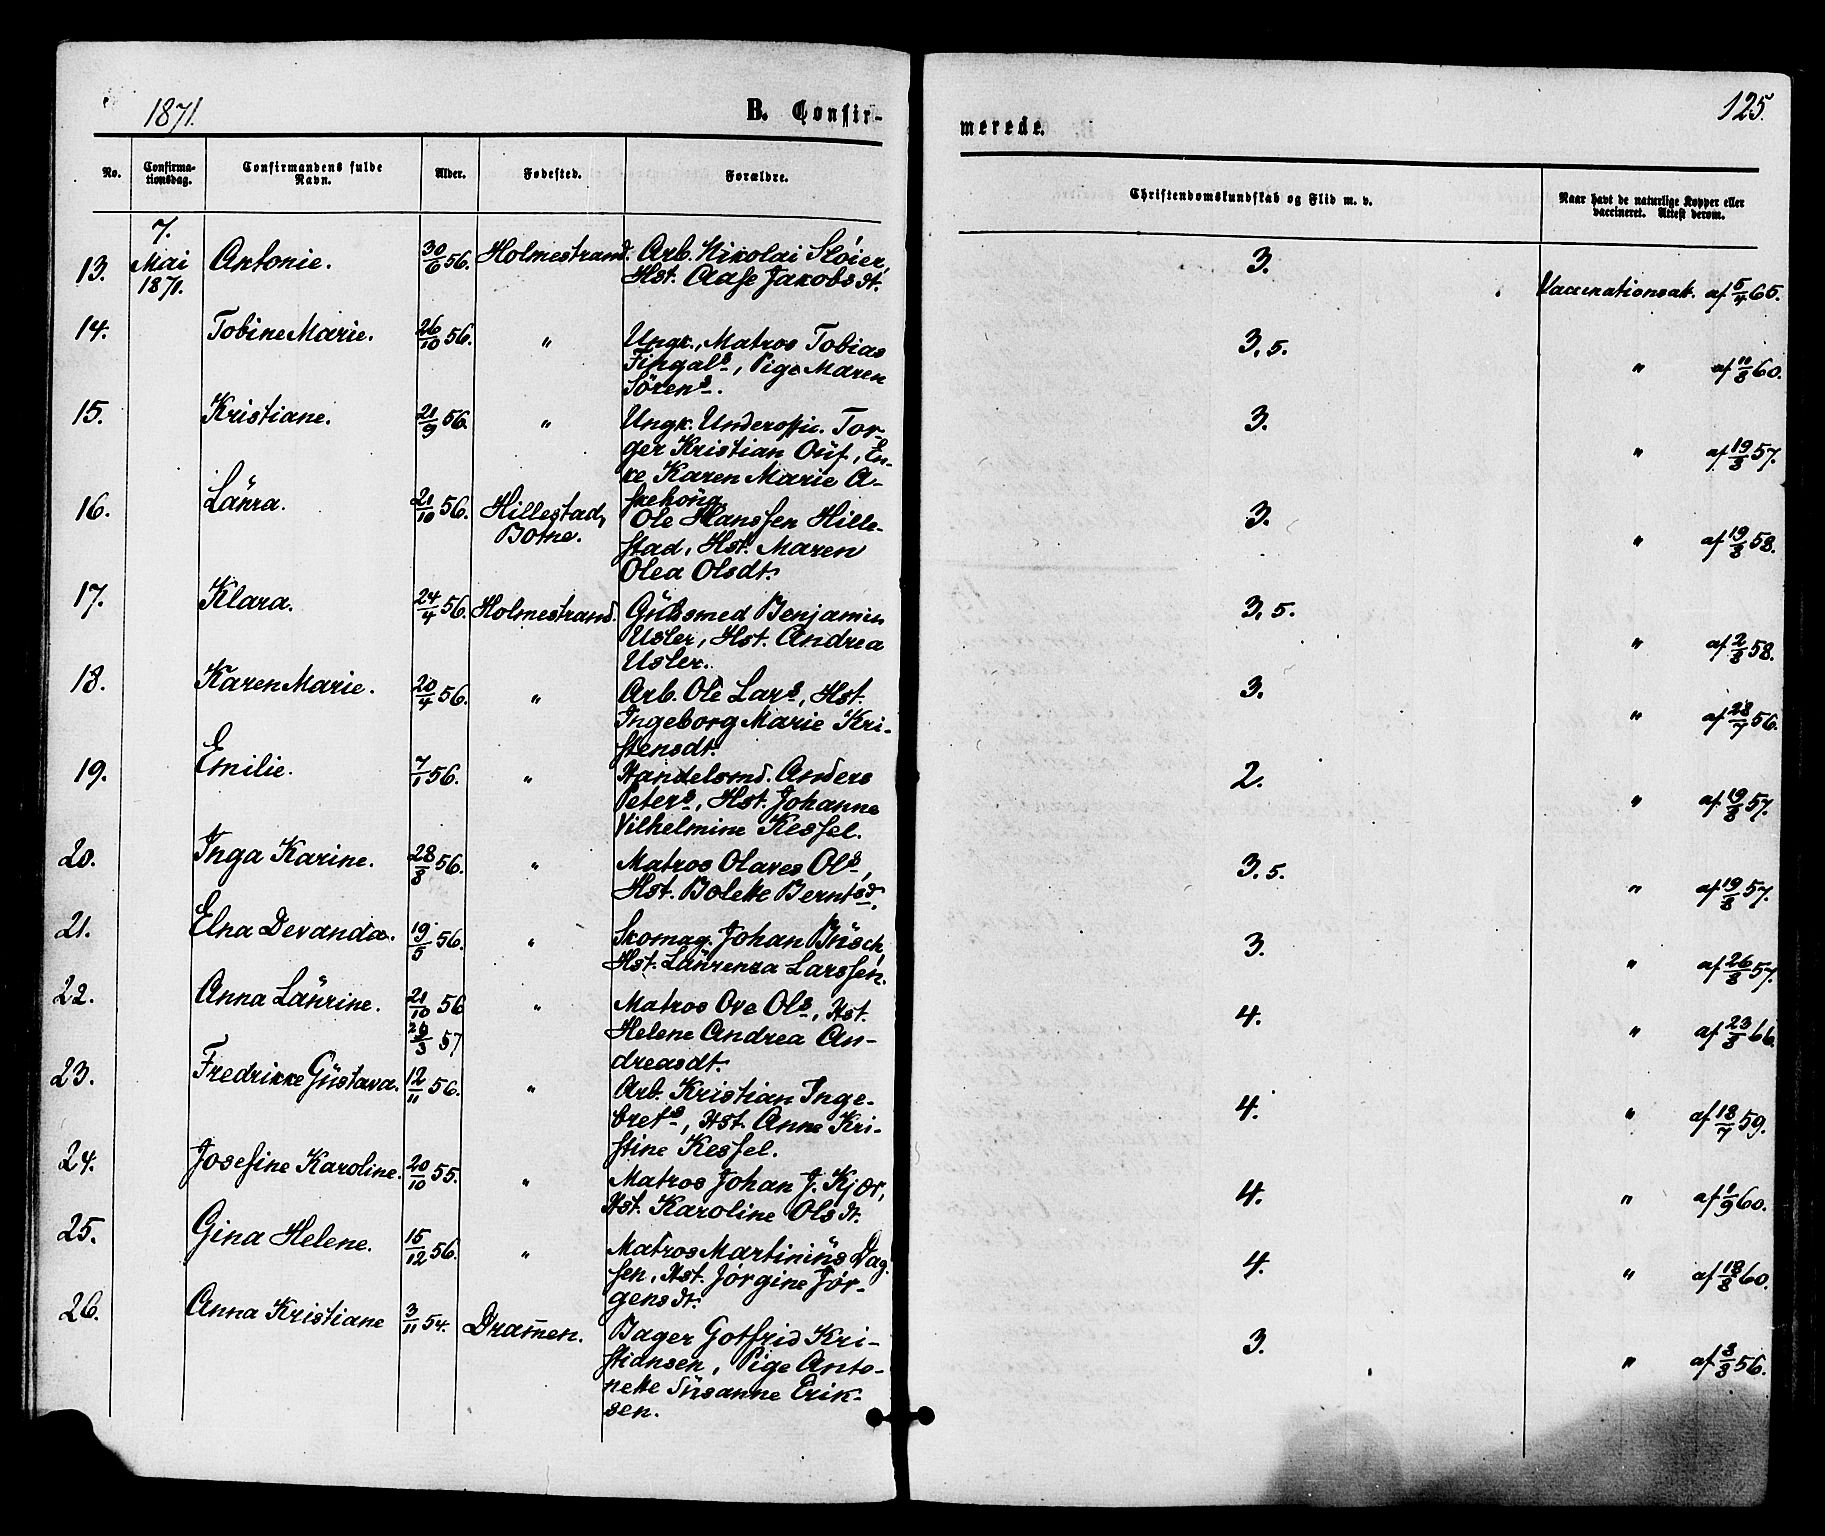 1871.
B. Confir-
merede.
125.
No.
Confirma-
tionsdag.
Confirmandens fulde
Navn.
Alder.
Fødested.
Forældre.
Christendomskundskab og Flid m. v.
Naar havt de naturlige Kopper eller
vaccineret. Attest derom.
13. 7. Mai 1871. Antonie. 30/6 56. Holmestrand. Arb. Nikolai Sløier,
Hst. Aase Jakobsdt. 3. Vaccinationsatt. af 5/4 65.
14. Tobine Marie. 26/10 56. " Ungk., Matros Tobias
Fingals, Pige Maren
Sörens. 3,5. " af 11/8 60.
15. Kristiane. 21/9 56. " Ungk. Underoffic. Tor-
ger Kristian Ouf, En-
ke Karen Marie A-
skehöug. 3. " af 19/8 57.
16. Laura. 21/10 56. Hillestad,
Botne. Ole Hanssen Hille-
stad, Hst. Maren
Olea Olsdt. 3. " af 19/8 58.
17. Klara. 24/4 56. Holmestrand. Guldsmed Benjamin
Usler, Hst. Andrea
Usler. 3,5. " af 2/8 58.
18. Karen Marie. 20/4 56. " Arb. Ole Lars, Hst.
Ingeborg Marie Kri-
stensdt. 3. " af 28/7 56.
19. Emilie. 7/1 56. " Handelsmd. Anders
Peters, Hst. Johanne
Vilhelmine Kessel. 2. " af 19/8 57.
20. Inga Karine. 28/8 56. " Matros Olaves Ols,
Hst. Bolette Berntsd. 3,5. " af 19/8 57.
21. Elna Devanda. 19/5 56. " Skomag. Johan Busch,
Hst. Laurenza Larssen. 3. " af 26/8 57.
22. Anna Laurine. 21/10 56 " Matros Ove Ols, Hst.
Helene Andrea An-
dreasdt. 4. " af 23/8 66.
/3 57
23. Fredrikke Gustava. 12/11 56. " Arb. Kristian Inge-
brets, Hst. Anne Kri-
stine Kessel. 4. " af 18/7 59.
24. Josefine Karoline. 20/10 55. " Matros Johan J. Kjær,
Hst. Karoline Olsdt. 4. " af 1/9 60.
25. Gina Helene. 15/12 56. " Matros Martinius Dag-
sen, Hst. Jørgine Jør-
gensdt. 4. " af 18/8 60.
26. Anna Kristiane 3/11 54. Drammen. Bager Gotfrid Kri-
stiansen, Pige Anto-
nette Susanne Erik-
sen. 3. " af 8/8 56.